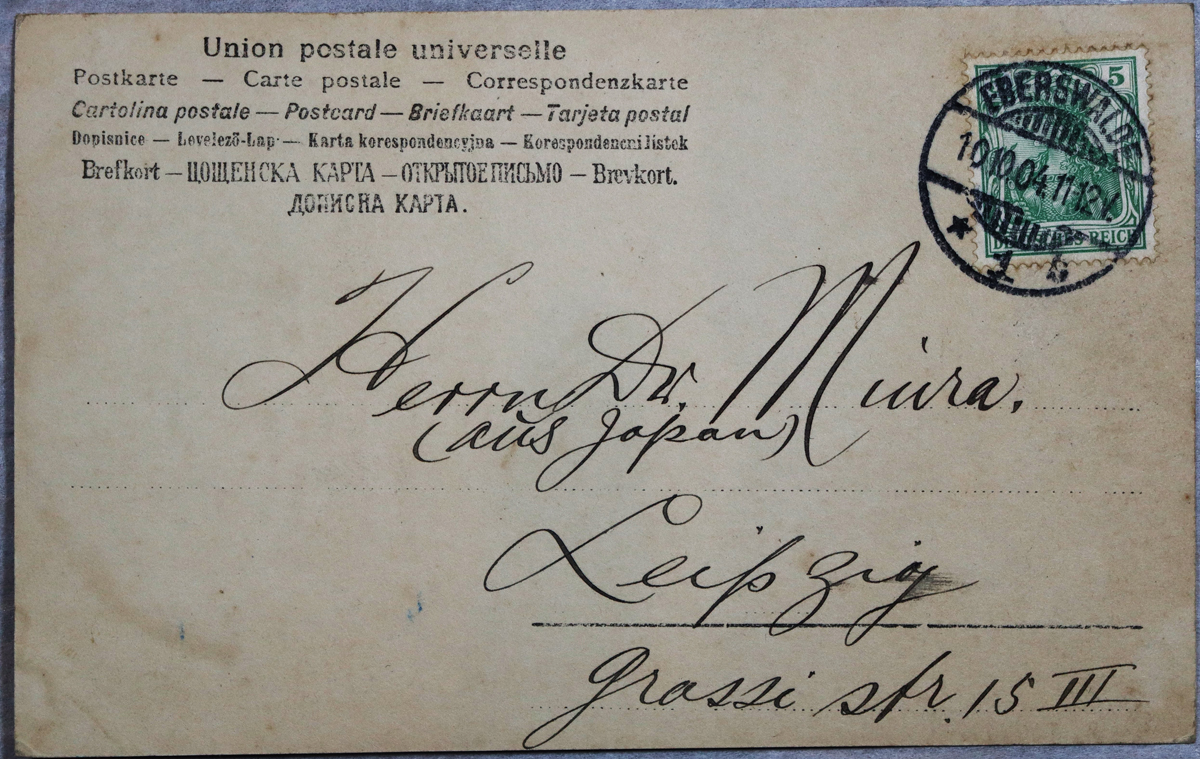 Union postale universelle
Postkarte — Carte postale — Correspondenzkarte
Cartolina postale — Postcard — Briefkaart — Tarjeta postal
Dopisnice — Levelező-Lap — Karta korespondencyjna — Korespondencni listek
Brefkort — ЦОЩЕНСКА КАРТА — ОТКРЫТОЕ ПИСЬМО — Brevkort.
ДОПИСНА КАРТА.
5
EBERSWALDE
10.10.04.11-12V.
★ 1 b
REICH
Herrn Dr. Miura.
(aus Japan)
Leipzig
Grassi str. 15 III